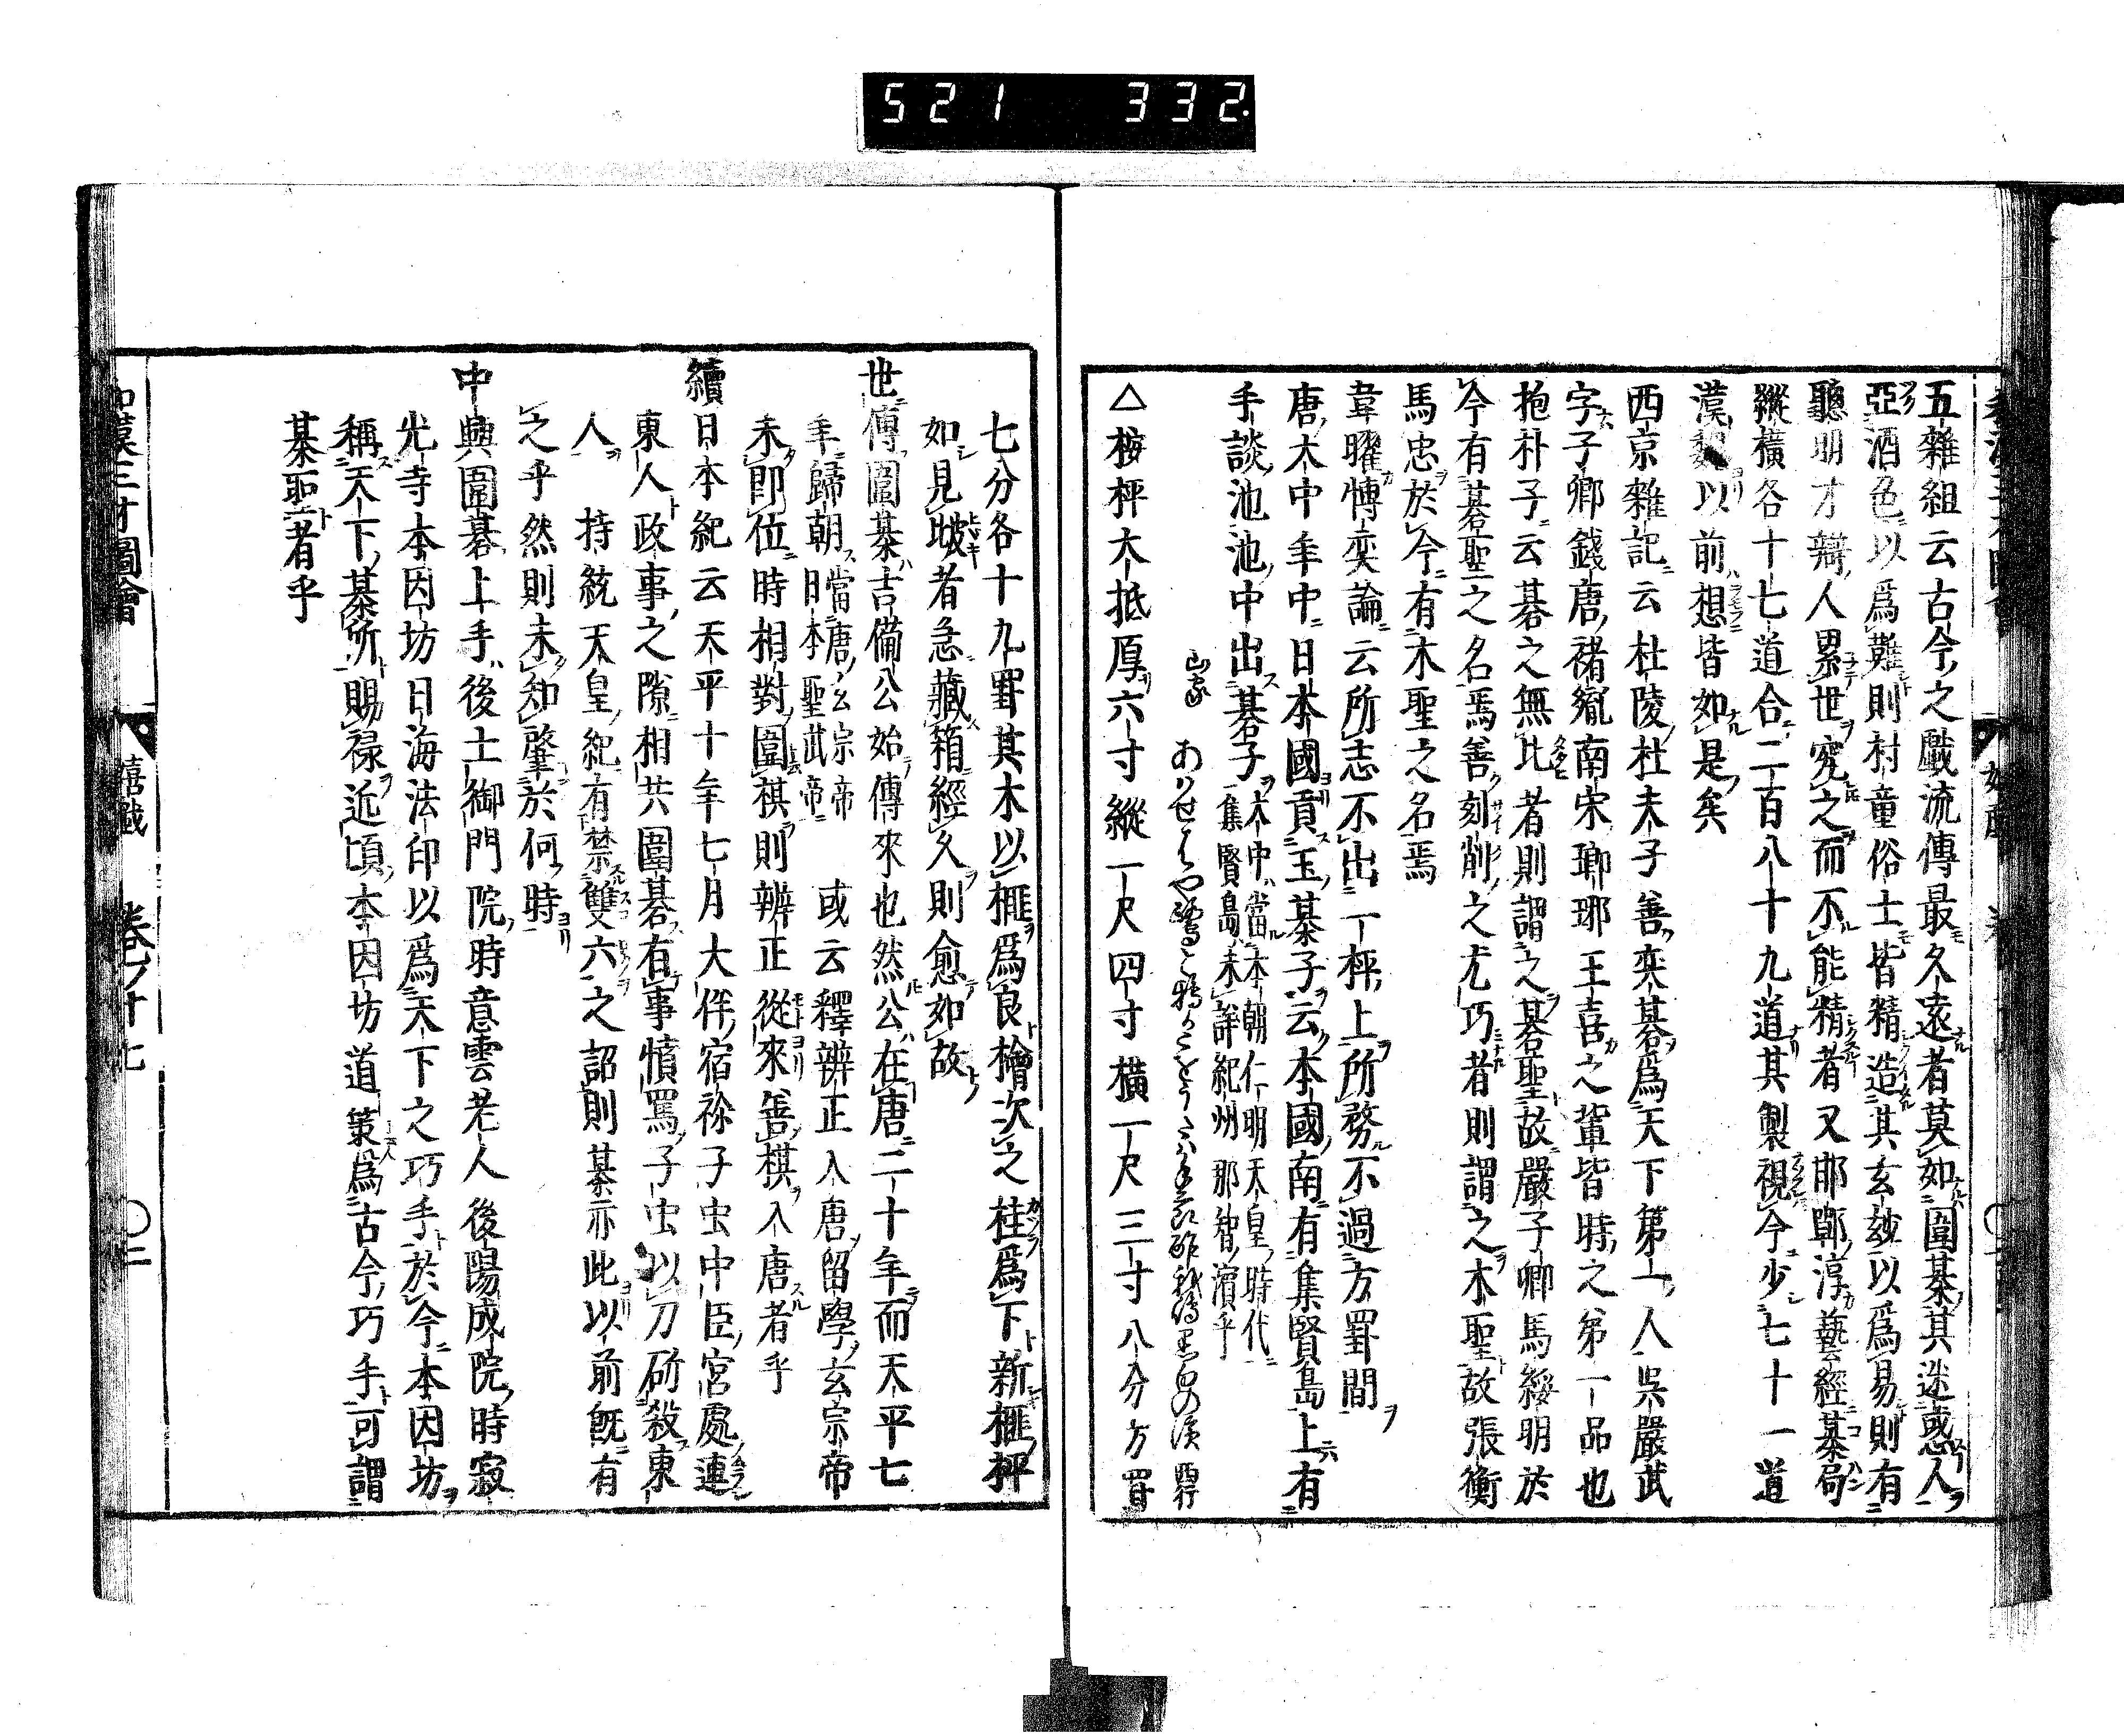 521 332
五雜組云古今之戲流傳最久遠者莫如圍棊其迷惑人
亞酒色以爲難則村童俗士皆精造其玄玅以爲易則有
聰明才辯人累世究之而不能精者又邯鄲淳藝經棊局
縱橫各十七道合二百八十九道其製視今少七十一道
漢魏以前想皆如是矣
西京雜記云杜陵杜夫子善奕碁爲天下第一人吳嚴武
字子卿錢唐褚𦙍南宋瑯琊王喜之輩皆時之第一品也
抱朴子云碁之無比者則謂之碁聖故嚴子卿馬綏明於
今有碁聖之名焉善刻削之尤巧者則謂之木聖故張衡
馬忠於今有木聖之名焉
韋曜愽奕論云所志不出一枰上所務不過方罫間
唐大中年中日本國貢玉棊子云本國南有集賢島上有
手談池池中出碁子 大中當本朝仁明天皇時代 集賢島未詳紀州那智濱乎
山家
西行
△桉枰大抵厚六寸縱一尺四寸橫一尺三寸八分方罫
七分各十九罫其木以榧爲良檜次之桂爲下新榧枰
如見坼者急藏箱經久則愈如故
世傳圍棊吉備公始傳來也然公在唐二十年而天平七
年歸朝 當唐玄宗帝 日本聖武帝 或云釋辨正入唐留學玄宗帝
未即位時相對圍棋則辨正從來善棋入唐者乎
續日本紀云天平十年七月大伴宿祢子虫中臣宮處連
東人政事之隙相共圍碁有事憤罵子虫以刀斫殺東
人 持統天皇紀有禁雙六之詔則棊亦此以前既有
之乎然則未知肇於何時
中興圍碁上手後土御門院時意雲老人後陽成院時寂
光寺本因坊日海法印以爲天下之巧手於今本因坊
稱天下棊所賜禄近頃本因坊道策爲古今巧手可謂
棊聖者乎
和漢三才圖會 嬉戲 卷ノ十七 〇二